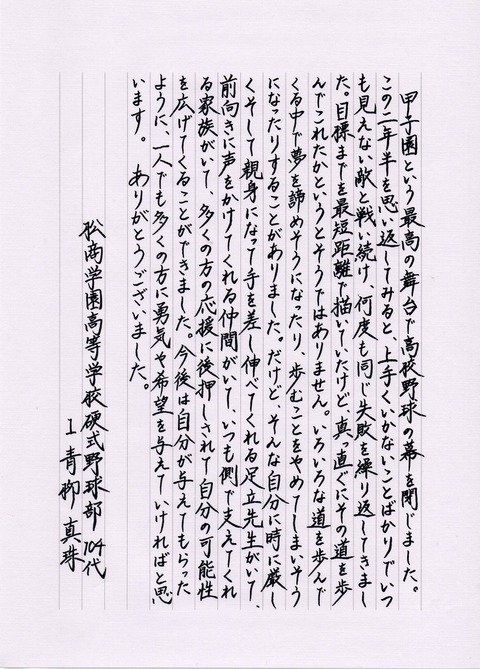 甲子園という最高の舞台で高校野球の幕を閉じました。
この二年半を思い返してみると、上手くいかないことばかりでいつ
も見えない敵と戦い続け、何度も同じ失敗を繰り返してきまし
た。目標までを最短距離で描いていたけど、真っ直ぐにその道を歩
んでこれたかというとそうではありません。いろいろな道を歩んで
くる中で夢を諦めそうになったり、歩むことをやめてしまいそう
になったりすることがありました。だけど、そんな自分に時に厳し
くそして親身になって手を差し伸べてくれる足立先生がいて、
前向きに声をかけてくれる仲間がいて、いつも側で支えてくれ
る家族がいて、多くの方の応援に後押しされて自分の可能性
を広げてくることができました。今後は自分が与えてもらった
ように、一人でも多くの方に勇気や希望を与えていければと思
います。 ありがとうございました。
松商学園高等学校硬式野球部 104代
1 青柳 真珠